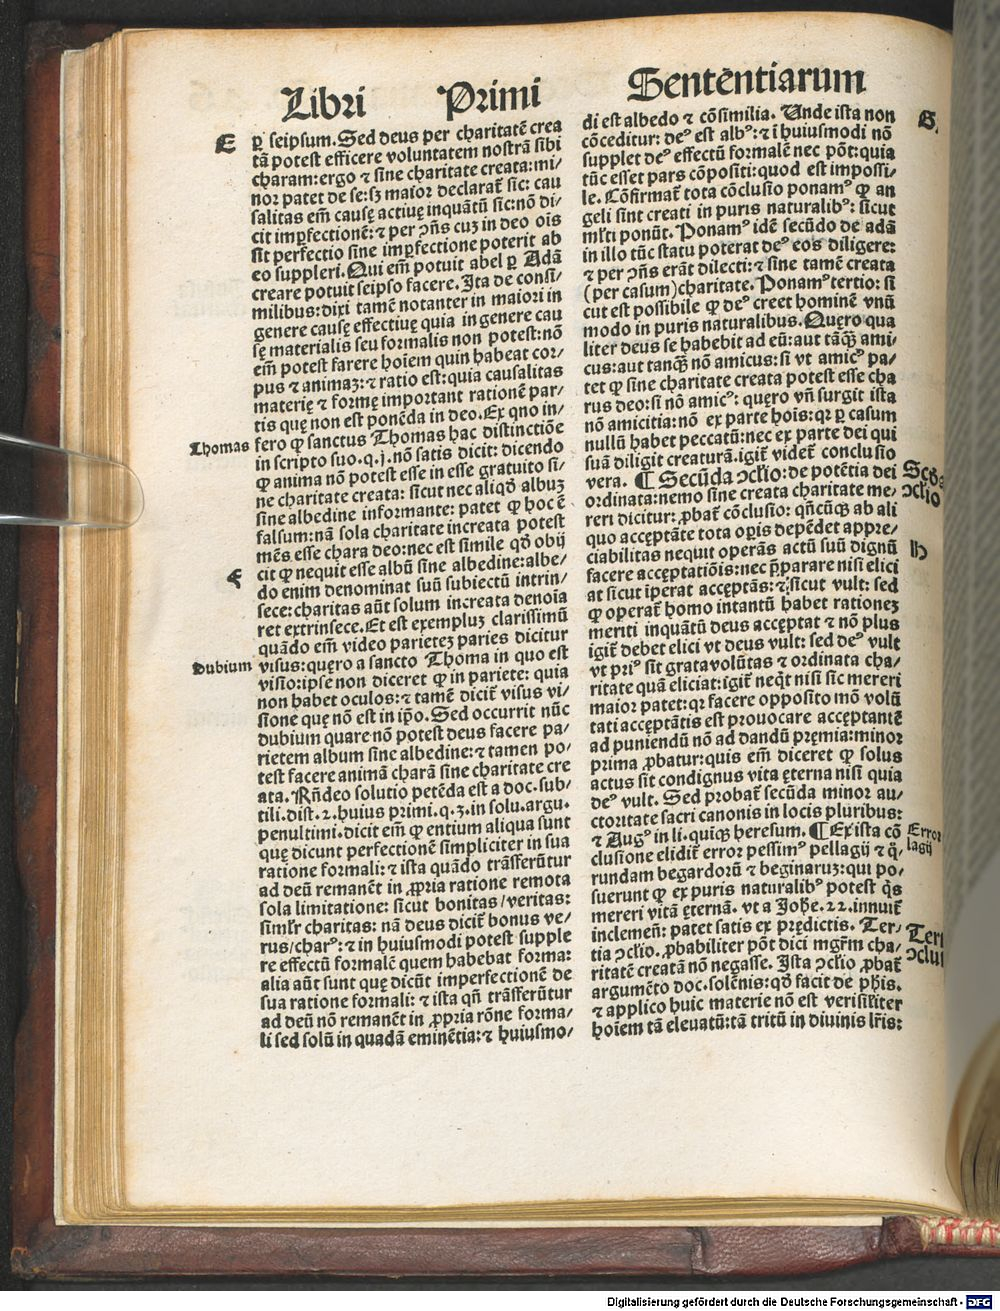 Libri Primi Sententiarum
E
ꝑ seipsum. Sed deus per charitatē crea
tā potest efficere voluntatem nostrā sibi
charam: ergo ⁊ sine charitate creata: mi/
nor patet de se: sꝫ maior declarat̄ sic: cau
salitas em̄ causę actiuę inquātū sic: nō di/
cit imꝑfectionē: ⁊ per ↄ̄ns cuꝫ in deo oīs
sit perfectio sine imꝑfectione poterit ab
eo suppleri. Qui em̄ potuit abel ꝑ Adā
creare potuit seipso facere. Ita de consi/
milibus: dixi tamē notanter in maiori in
genere causę effectiuę quia in genere cau
sę materialis seu formalis non potest: nō
em̄ potest farere hoīem quin habeat cor/
pus ⁊ animaꝫ: ⁊ ratio est: quia causalitas
materię ⁊ formę important rationē par/
tis quę non est ponēda in deo. Ex qno in/
Thomas
fero ꝙ sanctus Thomas hac distinctiōe
in scripto suo. q. j. nō satis dicit: dicendo
ꝙ anima nō potest esse in esse gratuito si/
ne charitate creata: sicut nec aliqđ albuꝫ
sine albedine informante: patet ꝙ hoc ē
falsum: nā sola charitate increata potest
mēs esse chara deo: nec est simile qđ obij
F
cit ꝙ nequit esse albū sine albedine: albe/
do enim denominat suū subiectū intrin/
sece: charitas aūt solum increata denoīa
ret extrinsece. Et est exempluꝫ clarissimū
quādo em̄ video parieteꝫ paries dicitur
Dubium
visus: quęro a sancto Thoma in quo est
visio: ipse non diceret ꝙ in pariete: quia
non habet oculos: ⁊ tamē dicit̄ visus vi/
sione quę nō est in ip̄o. Sed occurrit nūc
dubium quare nō potest deus facere pa/
rietem album sine albedine: ⁊ tamen po/
test facere animā charā sine charitate cre
ata. Rn̄deo solutio petēda est a doc. sub/
tili. dist. 2. huius primi. q. 3. in solu. argu.
penultimi. dicit em̄ ꝙ entium aliqua sunt
quę dicunt perfectionē simpliciter in sua
ratione formali: ⁊ ista quādo trāsferūtur
ad deū remanēt in ꝓpria ratione remota
sola limitatione: sicut bonitas/veritas:
simlr̄ charitas: nā deus dicit̄ bonus ve/
rus/charꝰ: ⁊ in huiusmodi potest supple
re effectū formalē quem habebat forma:
alia aūt sunt quę dicūt imperfectionē de
sua ratione formali: ⁊ ista qn̄ trāsferūtur
ad deū nō remanēt in ꝓpria rōne forma/
li sed solū in quadā eminētia: ⁊ huiusmo/
di est albedo ⁊ cōsimilia. Unde ista non
G
cōceditur: deꝰ est albꝰ: ⁊ ī huiusmodi nō
supplet deꝰ effectū formalē nec pōt: quia
tūc esset pars cōpositi: quod est impossi/
le. Cōfirmat̄ tota cōclusio ponamꝰ ꝙ an
geli sint creati in puris naturalibꝰ: sicut
ml̄ti ponūt. Ponamꝰ idē secūdo de adā
in illo tūc statu poterat deꝰ eos diligere:
⁊ per ↄ̄ns erāt dilecti: ⁊ sine tamē creata
(per casum) charitate. Ponamꝰ tertio: si
cut est possibile ꝙ deꝰ creet hominē vnū
modo in puris naturalibus. Quęro qua
liter deus se habebit ad eū: aut tāqꝫ ami/
cus: aut tanqꝫ nō amicus: si vt amicꝰ pa/
tet ꝙ sine charitate creata potest esse cha
rus deo: si nō amicꝰ: quęro vn̄ surgit ista
nō amicitia: nō ex parte hoīs: qr ꝑ casum
nullū habet peccatū: nec ex parte dei qui
suā diligit creaturā. igit̄ videt̄ conclusio
vera. ¶ Secūda ↄclīo: de potētia dei
Scđa
ↄclīo
ordinata: nemo sine creata charitate me/
reri dicitur: ꝓbat̄ cōclusio: qn̄cūqꝫ ab ali
quo acceptāte tota oꝑis depēdet appre/
ciabilitas nequit operās actū suū dignū
H
facere acceptatiōis: nec p̄parare nisi elici
at sicut īperat acceptās: ⁊ sicut vult: sed
ꝙ operat̄ homo intantū habet rationeꝫ
meriti inquātū deus acceptat ⁊ nō plus
igit̄ debet elici vt deus vult: sed deꝰ vult
vt priꝰ sit grata volūtas ⁊ ordinata cha/
ritate quā eliciat: igit̄ neq̄t nisi sic mereri
maior patet: qr facere opposito mō volū
tati acceptātis est prouocare acceptantē
ad puniendū nō ad dandū pręmia: minor
prima ꝓbatur: quis em̄ diceret ꝙ solus
actus sit condignus vita ęterna nisi quia
deꝰ vult. Sed probat̄ secūda minor au/
ctoritate sacri canonis in locis pluribus:
⁊ Augꝰ in li. quiqꝫ heresum. ¶ Ex ista cō
Error
lagij
clusione elidit̄ error pessimꝰ pellagij ⁊ q̄/
rundam begardorū ⁊ beginaruꝫ: qui po/
suerunt ꝙ ex puris naturalibꝰ potest q̇s
mereri vitā ęternā. vt a Johe. 22. innuit̄
inclemen̄: patet satis ex prędictis. Ter/
Tert
ↄclu
tia ↄclīo. ꝓbabiliter pōt dici mgr̄m cha/
ritatē creatā nō negasse. Ista ↄclīo ꝓbat̄
argumēto doc. solēnis: qđ facit de ph̄is.
⁊ applico huic materie nō est verisil̄iter
hoīem tā eleuatū: tā tritū in diuinis lr̄is:
Digitalisierung gefördert durch die Deutsche Forschungsgemeinschaft - DFG